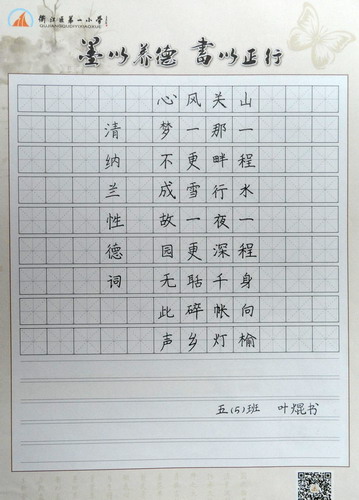 衢江区第一小学
QUJIANGQUDIYIXIAOXUE
墨以养德 書以正行
山一程水一程身向榆
关那畔行夜深千帐灯
风一更雪一更聒碎乡
心梦不成故园无此声
清纳兰性德词
五(5)班 叶焜书